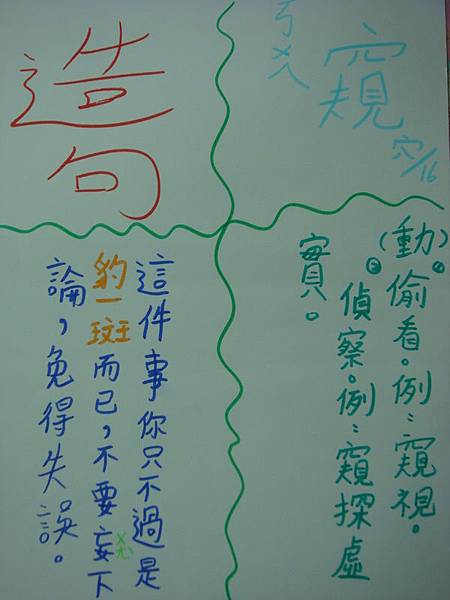 ㄎㄨㄟ
窺
穴/16
(動)❶偷看。例：窺視。
❷偵察。例：窺探虛
實。
造句
這件事你只不過是
豹一斑而已，不要妄下
ㄨㄤˋ
論，免得失誤。